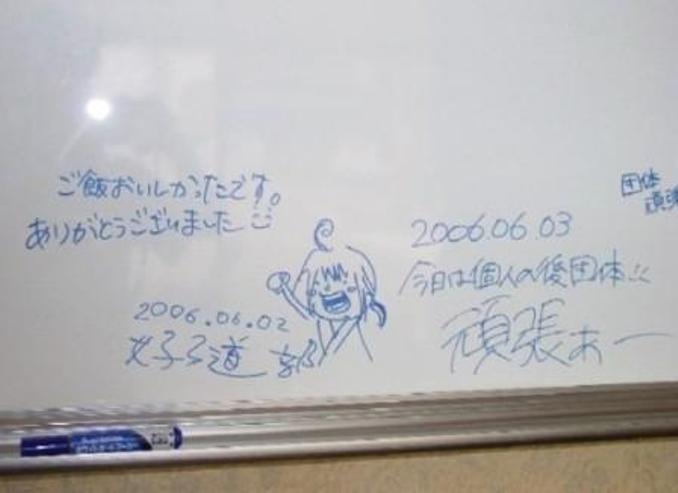 ご飯おいしかったです。
ありがとうございました
2006.06.02
女子弓道部
2006.06.03
今日は個人の後団体!!
頑張ぁー
団体
頑張